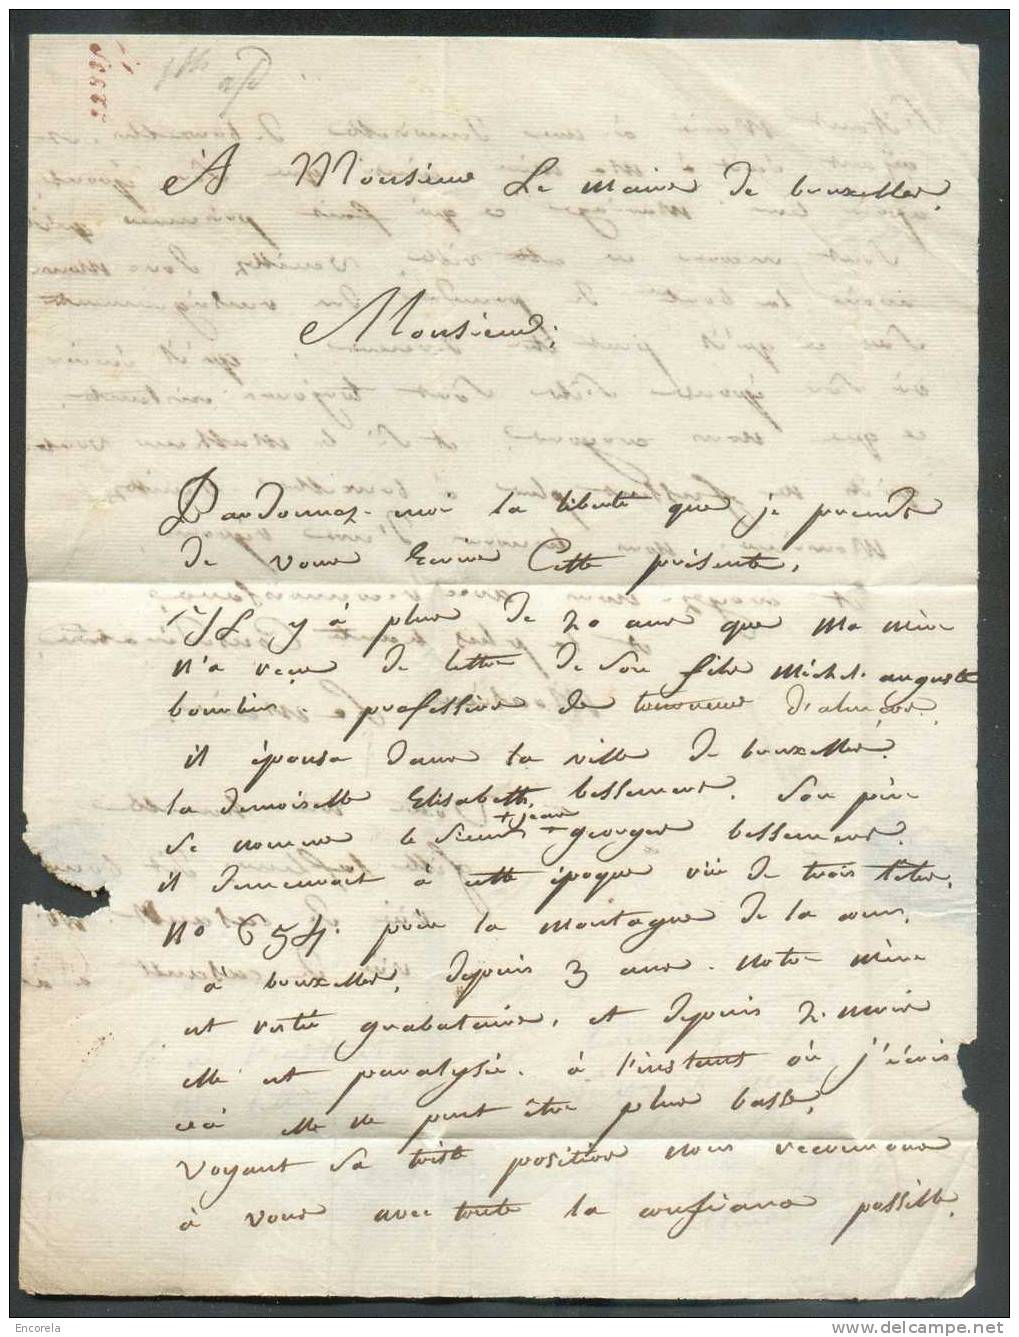 22535
À Monsieur Le maire de bruxelles,
Monsieur;
Pardonnez-moi la liberté que je prends
de vous Ecrire Cette présente,
il y à plus de 20 ans que ma mère
n'a reçu de lettre de son fils michel. auguste
bourbier. professeur de d'alençon.
il épousa dans la ville de bruxelles.
la demoiselle Elisabeth bessemens. son père
+ jean +
se nomme le sieur georges bessemens.
il demeurait à cette époque rüe de trois têtes,
no 654. près la montagne de la cour,
à bruxelles, depuis 3 ans. notre mère
est restée grabataire, et depuis 2. mois
elle est paralysée. à l'instant où j'écris
ceci elle ne peut être plus basse,
voyant sa triste position nous recourons
à vous avec toute la confiance possible,
Encorela
www.delcampe.net